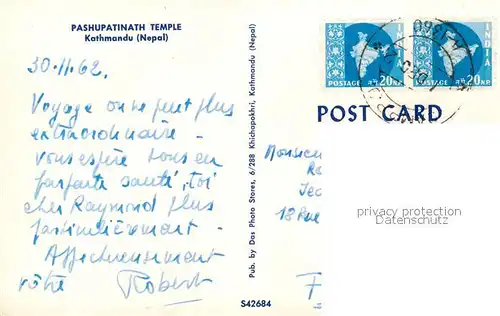 PASHUPATINATH TEMPLE
Kathmandu (Nepal)
30.11.62.
Voyage on ne peut plus
extraordinaire -
vous espère tous en
parfaite santé, toi
cher Raymond plus
particulièrement -
Affectueusement
vôtre Robert
Pub. by Das Photo Stores, 6/288 Khichapokhri, Kathmandu (Nepal)
S42684
INDIA
POSTAGE 20 NP.
INDIA
POSTAGE 20 NP.
POST CARD
Monsieur
18 Rue
privacy protection
Datenschutz